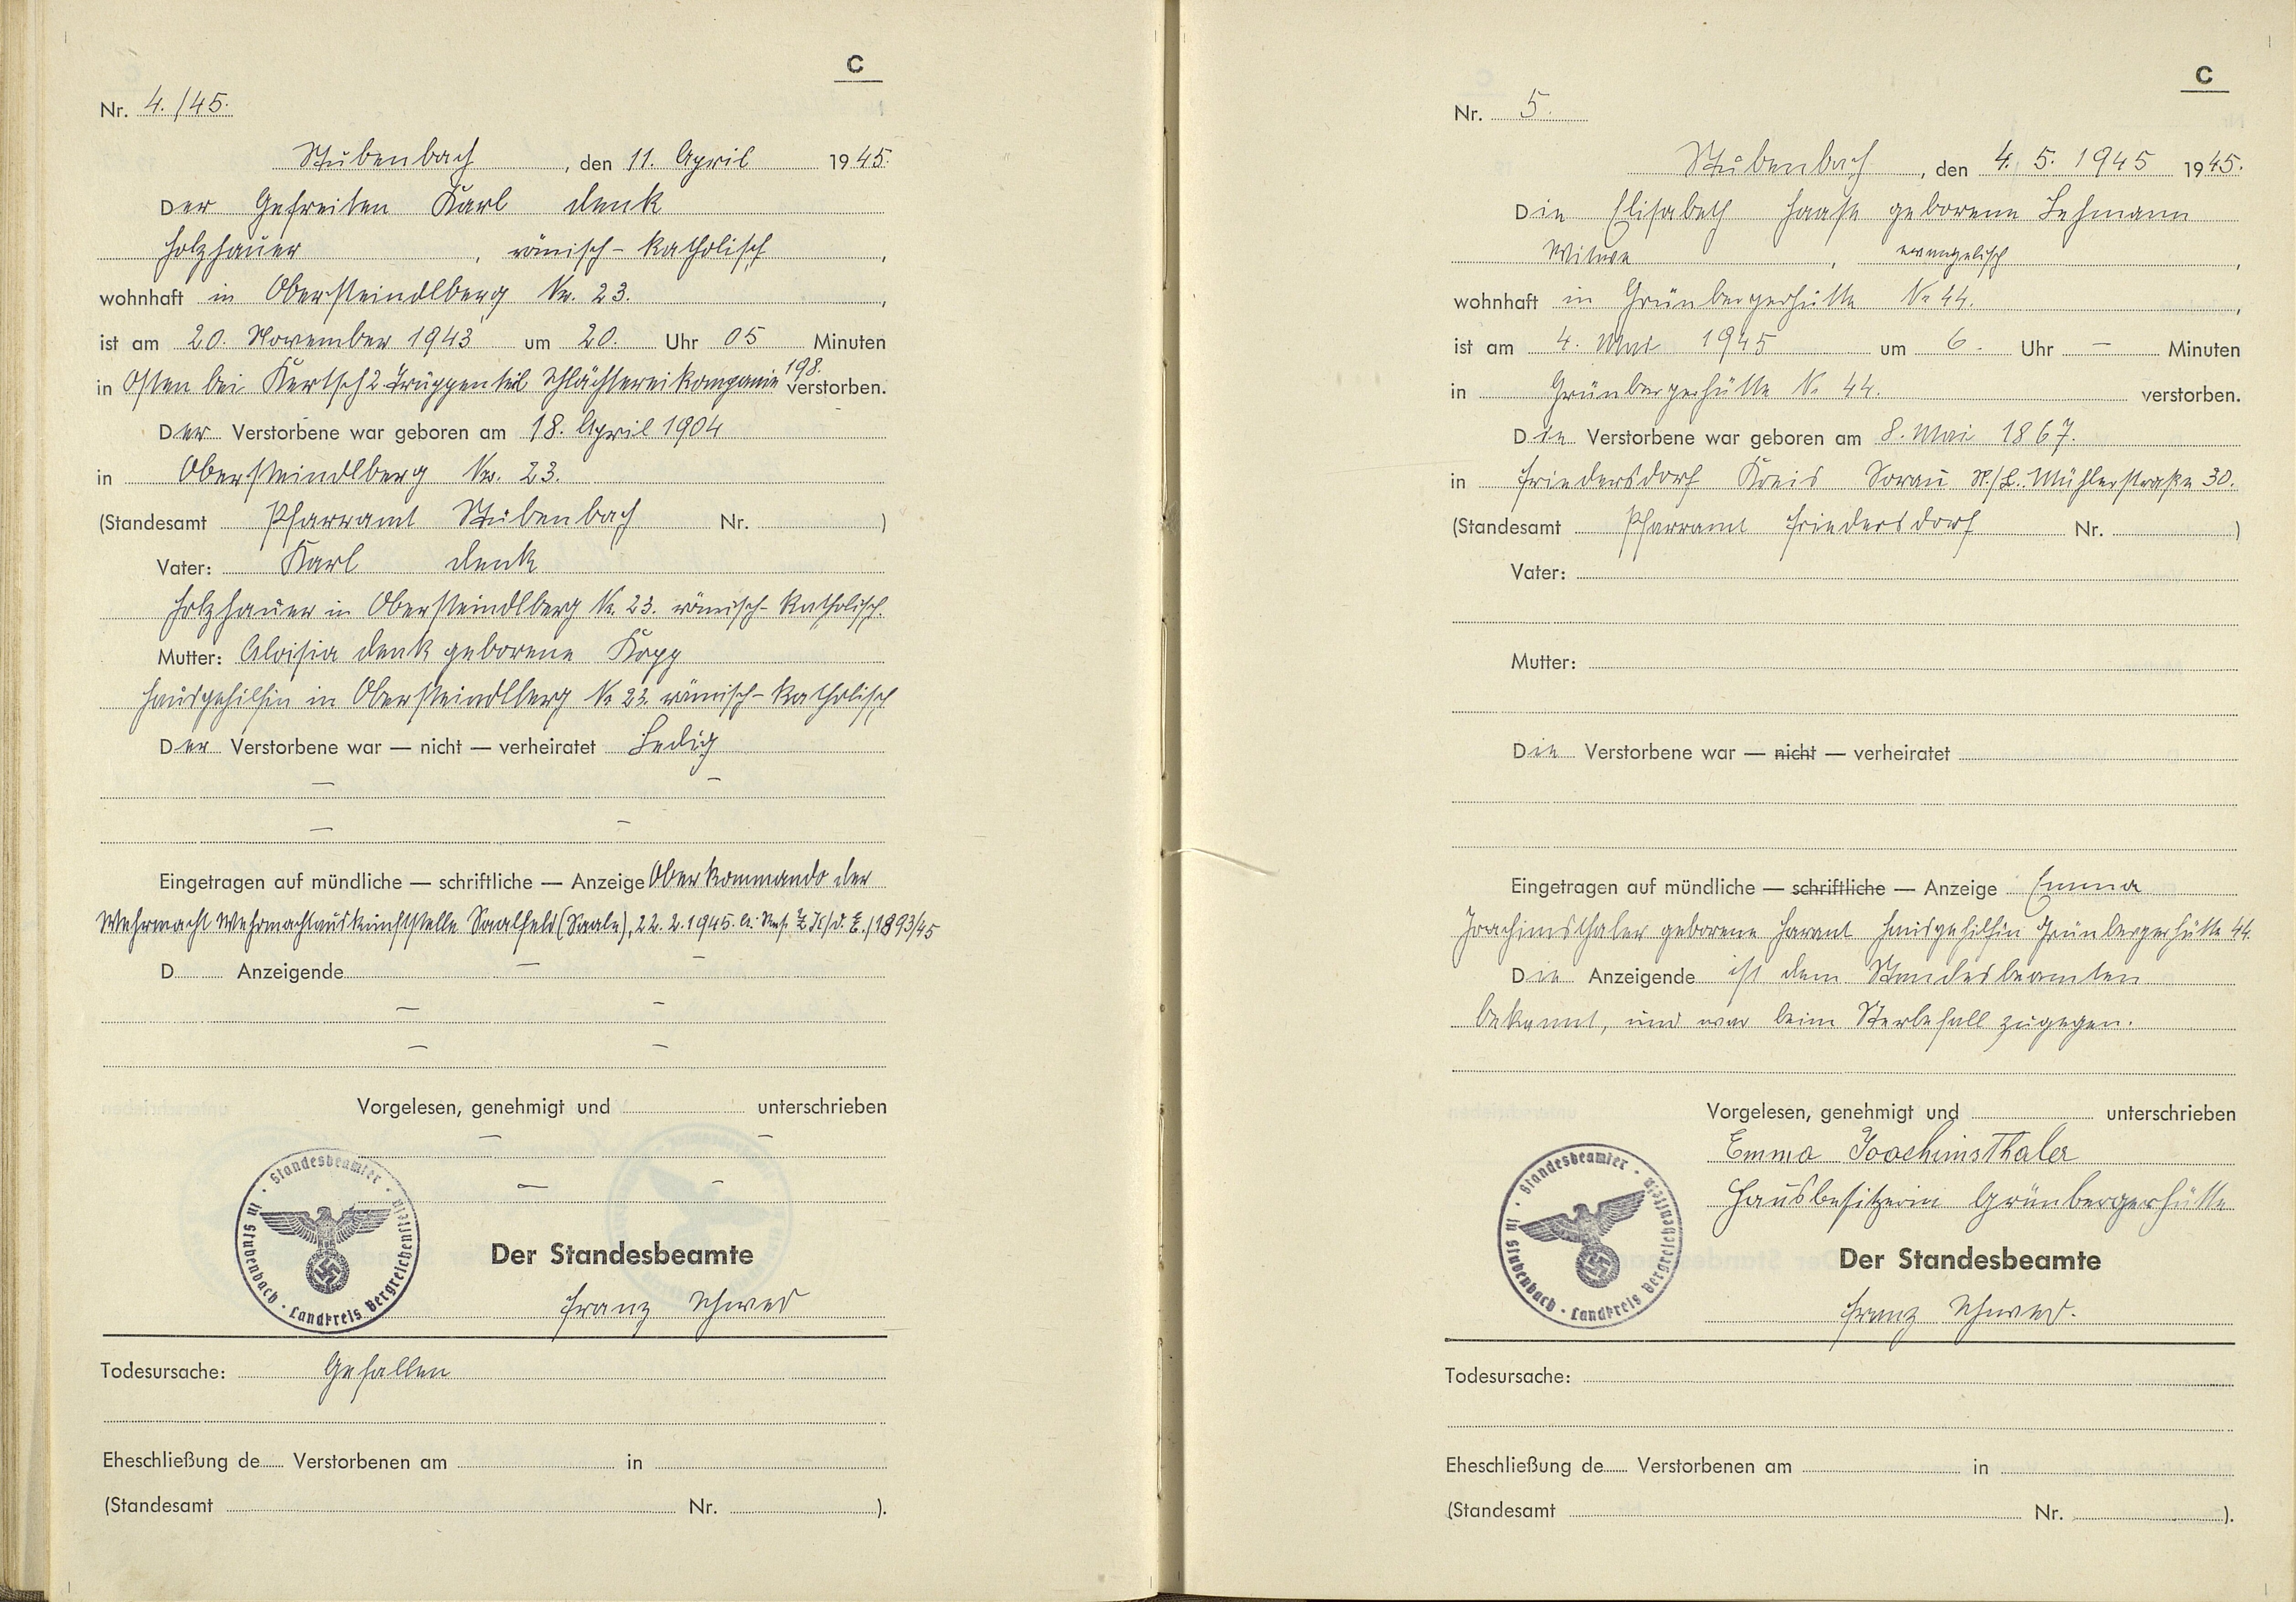 C
Nr. 4./45.
Stubenbach, den 11. April 1945.
Der Gefreiten Karl Denk
Holzhauer, römisch-katholisch,
wohnhaft in Obersteindlberg Nr. 23.,
ist am 20. November 1943 um 20. Uhr 05 Minuten
198.
in Osten bei Kertsch 2 Truppenteil Schlächtereikompanie verstorben.
Der Verstorbene war geboren am 18. April 1904
in Obersteindlberg Nr. 23.
(Standesamt Pfarramt Stubenbach Nr. )
Vater: Karl Denk
Holzhauer in Obersteindlberg Nr. 23. römisch-katholisch.
Mutter: Aloisia Denk geborene Kopp
Hausgehilfin in Obersteindlberg Nr 23. römisch-katholisch
Der Verstorbene war — nicht — verheiratet Ledig
— —
— —
Eingetragen auf mündliche — schriftliche — Anzeige Oberkommando der
Wehrmacht Wehrmachtauskunftstelle Saalfeld (Saale), 22.2.1945. 1893/45
D Anzeigende — —
— —
— —
Vorgelesen, genehmigt und unterschrieben
— —
— —
Standesbeamter · in Stubenbach · Landkreis Bergreichenstein
Der Standesbeamte
Franz Schwed
Todesursache: Gefallen
Eheschließung de Verstorbenen am in
(Standesamt Nr. ).
C
Nr. 5.
Stubenbach, den 4. 5. 1945 1945.
Die Elisabeth Haase geborene Lehmann
Witwe, evangelisch,
wohnhaft in Grünbergerhütte Nr 44.,
ist am 4. Mai 1945 um 6. Uhr — Minuten
in Grünbergerhütte Nr 44. verstorben.
Die Verstorbene war geboren am 8. Mai 1867.
in Friedersdorf Kreis Sorau N./L. Mühlerstraße 30.
(Standesamt Pfarramt Friedersdorf Nr. )
Vater:
Mutter:
Die Verstorbene war — nicht — verheiratet
Eingetragen auf mündliche — schriftliche — Anzeige Emma
Joachimsthaler geborene Harant Hausgehilfin Grünbergerhütte 44.
Die Anzeigende ist dem Standesbeamten
bekannt, und war beim Sterbefall zugegen.
Vorgelesen, genehmigt und unterschrieben
Emma Joachimsthaler
Hausbesitzerin Grünbergerhütte
Standesbeamter · in Stubenbach · Landkreis Bergreichenstein
Der Standesbeamte
Franz Schwed.
Todesursache:
Eheschließung de Verstorbenen am in
(Standesamt Nr. ).